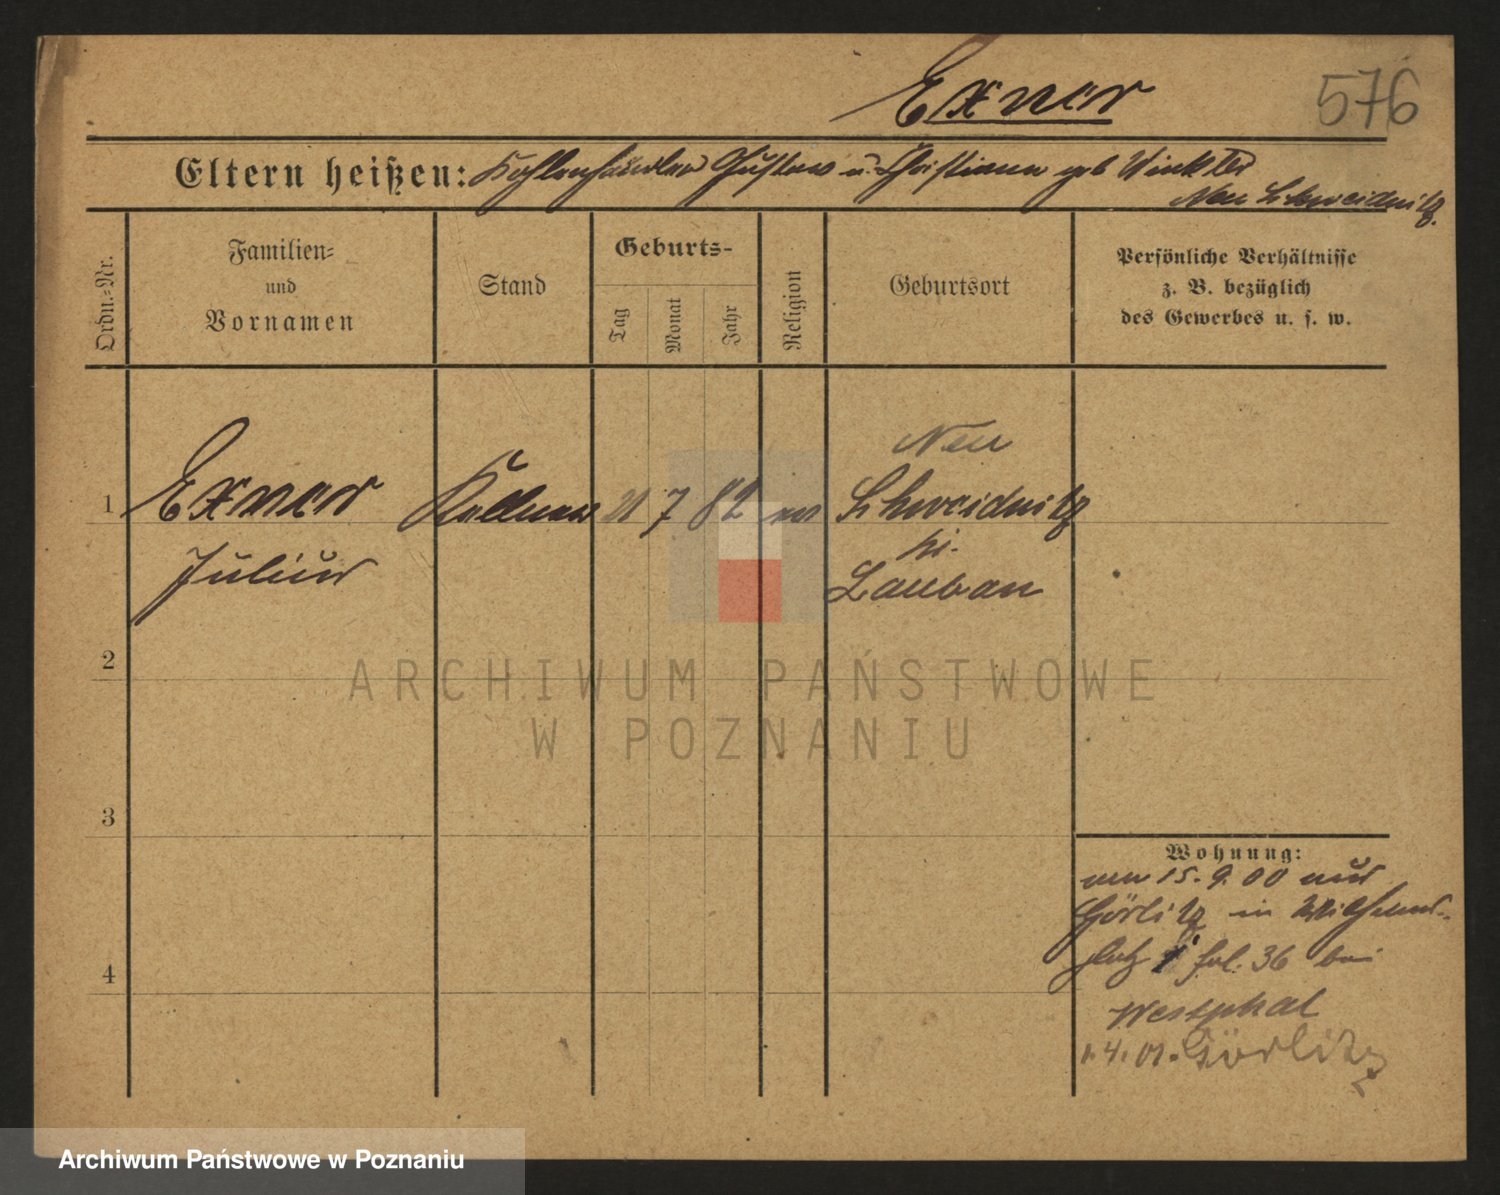 Exner
576
Eltern heißen: Kohlenhändler Gustav u. Christiane geb Winkler
Neu Schweidnitz.
Ordn.-Nr.
Familien-
und
Vornamen
Stand
Geburts-
Tag
Monat
Jahr
Religion
Geburtsort
Persönliche Verhältnisse
z. B. bezüglich
des Gewerbes u. s. w.
Neu
1 Exner Kellner 21 7 82 ev Schweidnitz
Julius
Lauban
2
ARCHIWUM PAŃSTWOWE
W POZNANIU
3
Wohnung:
15.9.00 aus
Görlitz in Wilhelms-
platz fol. 36 bei
4
Westphal
1.4.01. Görlitz
Archiwum Państwowe w Poznaniu